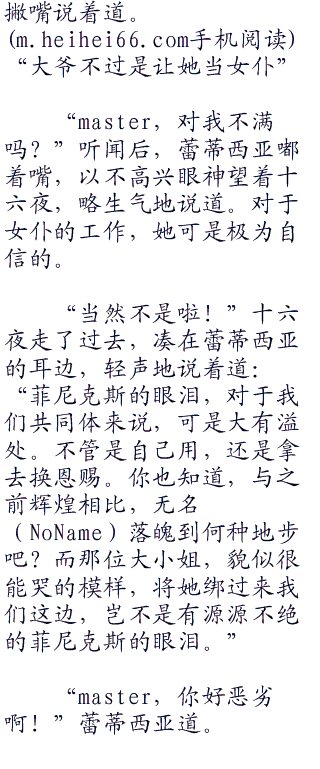 撇嘴说着道。
(m.heihei66.com手机阅读)
“大爷不过是让她当女仆”
“master，对我不满
吗？”听闻后，蕾蒂西亚嘟
着嘴，以不高兴眼神望着十
六夜，略生气地说道。对于
女仆的工作，她可是极为自
信的。
“当然不是啦！”十六
夜走了过去，凑在蕾蒂西亚
的耳边，轻声地说着道：
“菲尼克斯的眼泪，对于我
们共同体来说，可是大有溢
处。不管是自己用，还是拿
去换恩赐。你也知道，与之
前辉煌相比，无名
（NoName）落魄到何种地步
吧？而那位大小姐，貌似很
能哭的模样，将她绑过来我
们这边，岂不是有源源不绝
的菲尼克斯的眼泪。”
“master，你好恶劣
啊！”蕾蒂西亚道。